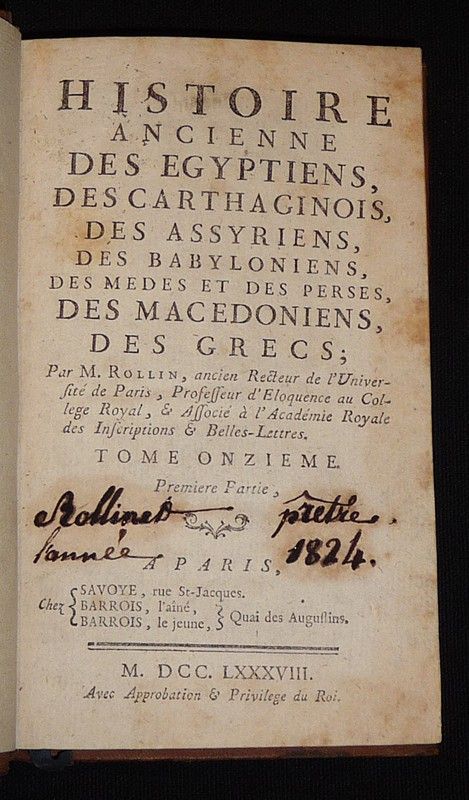 HISTOIRE
ANCIENNE
DES EGYPTIENS,
DES CARTHAGINOIS,
DES ASSYRIENS,
DES BABYLONIENS,
DES MEDES ET DES PERSES,
DES MACEDONIENS,
DES GRECS;
Par M. ROLLIN, ancien Recteur de l'Univer-
ſité de Paris, Profeſſeur d'Eloquence au Col-
lege Royal, & Aſſocié à l'Académie Royale
des Inſcriptions & Belles-Lettres.
TOME ONZIEME.
Premiere Partie,
Rollinet prêtre.
l'année 1824.
A PARIS,
Chez { SAVOYE, rue St-Jacques.
BARROIS, l'aîné,
BARROIS, le jeune, } Quai des Auguſtins.
M. DCC. LXXXVIII.
Avec Approbation & Privilege du Roi.